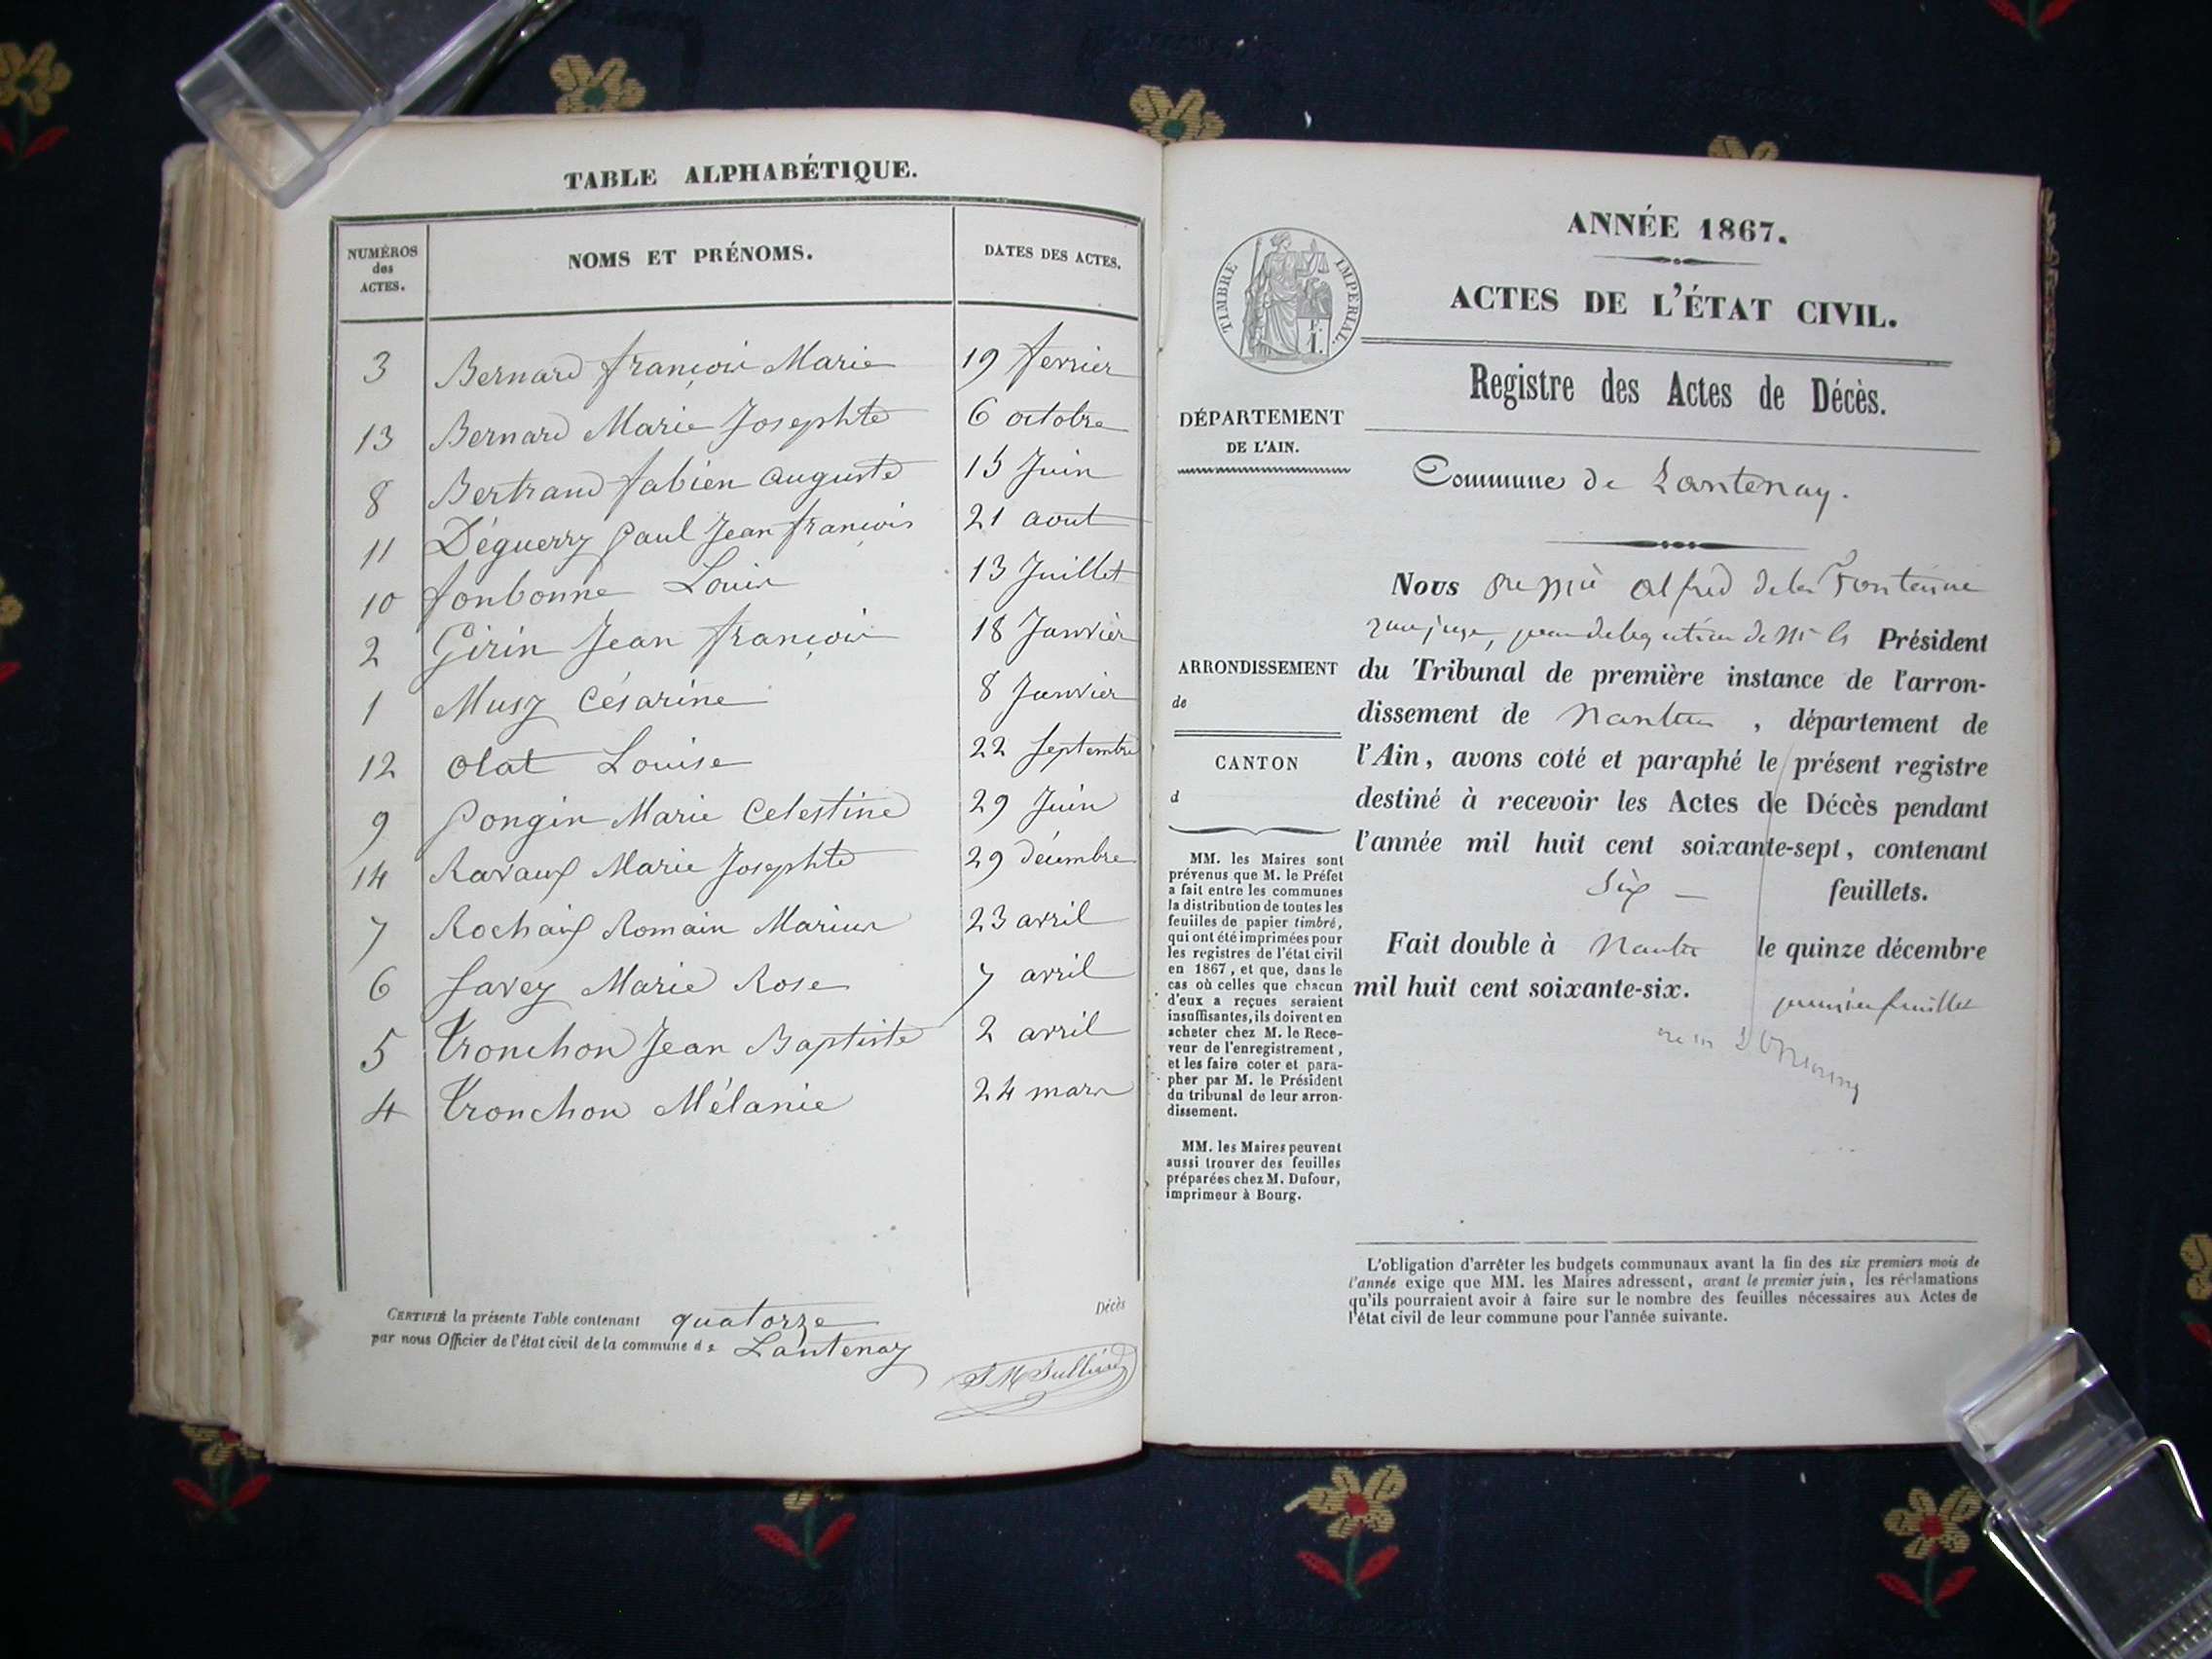 TABLE ALPHABÉTIQUE.
NUMÉROS
des
ACTES.
NOMS ET PRÉNOMS.
DATES DES ACTES.
3 Bernard françois Marie 19 fevrier
13 Bernard Marie Josephte 6 octobre
8 Bertrand fabien auguste 15 Juin
11 Déguerry Paul Jean françois 21 aout
10 fonbonne Louis 13 Juillet
2 Girin Jean françois 18 Janvier
1 Musy Césarine 8 Janvier
12 Olat Louise 22 Septembre
9 Pongin Marie Celestine 29 Juin
14 Ravaux Marie Josephte 29 décembre
7 Rochaix Romain Marius 23 avril
6 Savey Marie Rose 7 avril
5 Tronchon Jean Baptiste 2 avril
4 Tronchon Mélanie 24 mars
CERTIFIÉ la présente Table contenant quatorze Décès
par nous Officier de l'état civil de la commune de Lantenay
TIMBRE IMPERIAL.
ANNÉE 1867.
ACTES DE L'ÉTAT CIVIL.
Registre des Actes de Décès.
DÉPARTEMENT
DE L'AIN.
Commune de Lantenay.
ARRONDISSEMENT
de
CANTON
d
MM. les Maires sont
prévenus que M. le Préfet
a fait entre les communes
la distribution de toutes les
feuilles de papier timbré,
qui ont été imprimées pour
les registres de l'état civil
en 1867, et que, dans le
cas où celles que chacun
d'eux a reçues seraient
insuffisantes, ils doivent en
acheter chez M. le Rece-
veur de l'enregistrement,
et les faire coter et para-
pher par M. le Président
du tribunal de leur arron-
dissement.
MM. les Maires peuvent
aussi trouver des feuilles
préparées chez M. Dufour,
imprimeur à Bourg.
Nous Alfred
Président
du Tribunal de première instance de l'arron-
dissement de Nantua, département de
l'Ain, avons coté et paraphé le présent registre
destiné à recevoir les Actes de Décès pendant
l'année mil huit cent soixante-sept, contenant
Six feuillets.
Fait double à Nantua le quinze décembre
mil huit cent soixante-six.
premier feuillet
L'obligation d'arrêter les budgets communaux avant la fin des six premiers mois de
l'année exige que MM. les Maires adressent, avant le premier juin, les réclamations
qu'ils pourraient avoir à faire sur le nombre des feuilles nécessaires aux Actes de
l'état civil de leur commune pour l'année suivante.